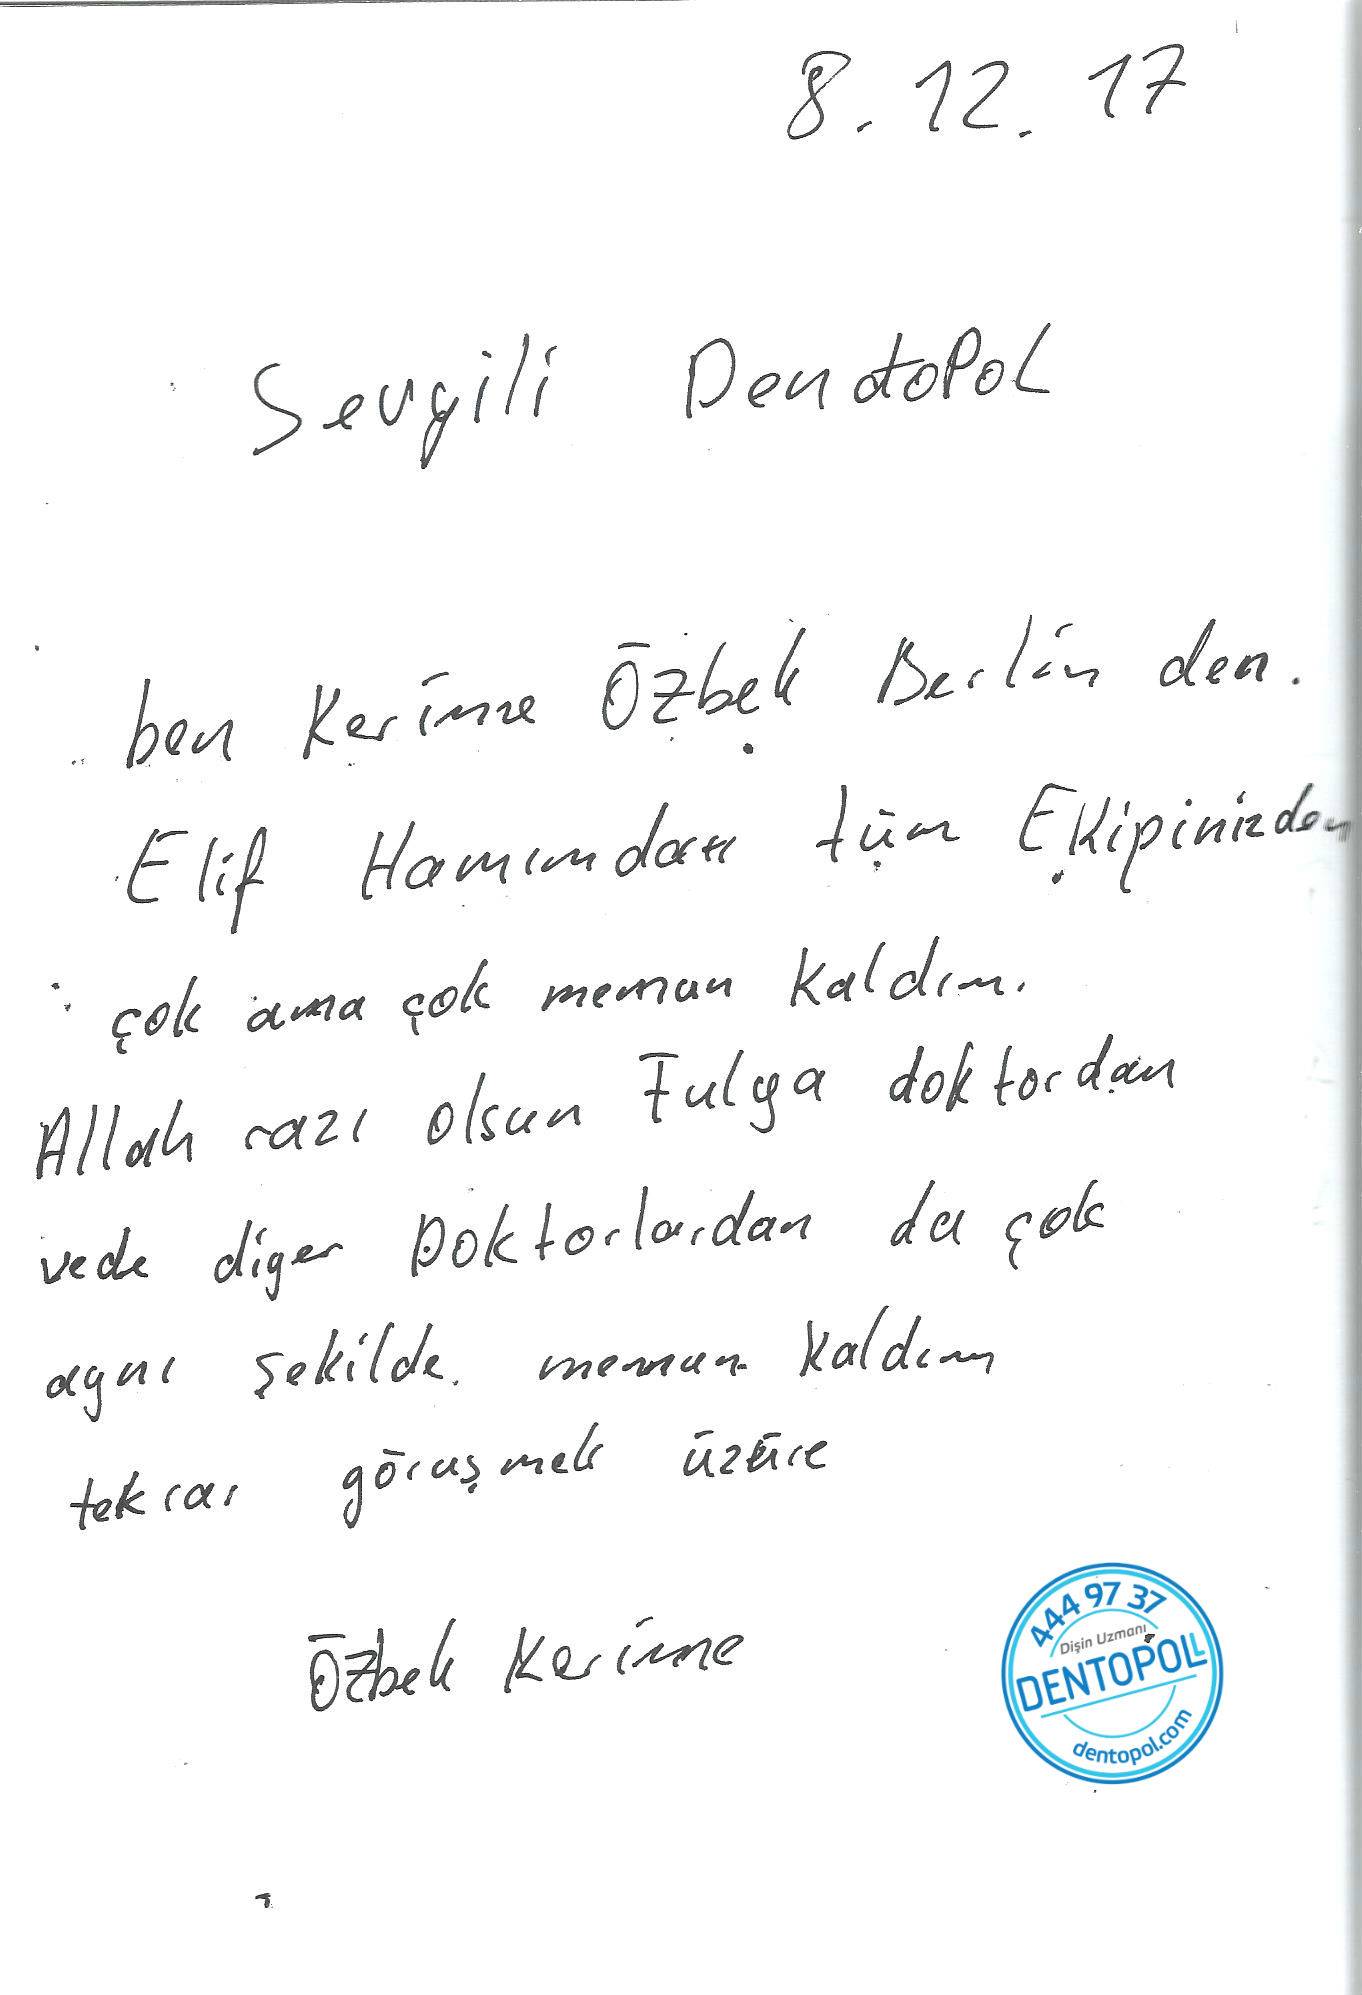 8.12.17
Sevgili DentoPol
ben Kerime Özbek Berlin den.
Elif Hanımdan tüm Ekipinizden
çok ama çok memnun kaldım.
Allah razı olsun Fulya doktordan
vede diger Doktorlardan da çok
aynı şekilde. memnun kaldım
tekrar görüşmek üzüre
Özbek Kerime
444 97 37
Dişin Uzmanı
DENTOPOL
dentopol.com